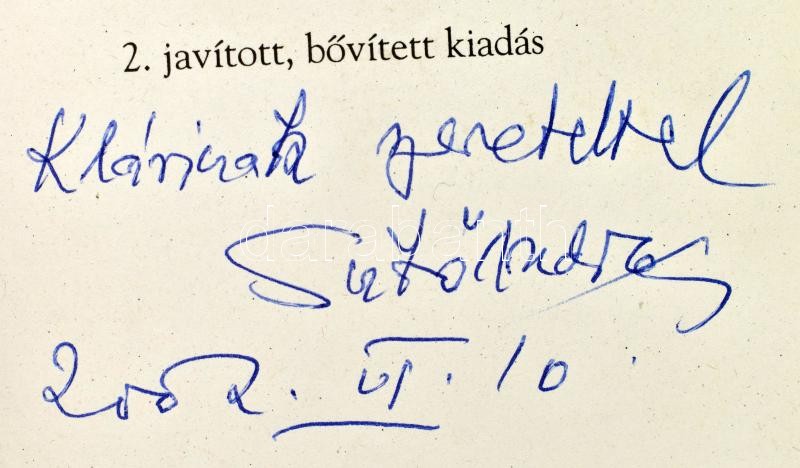 2. javított, bővített kiadás
Klárinak szeretettel
Sütő András
2002. VI. 10.
darabanth